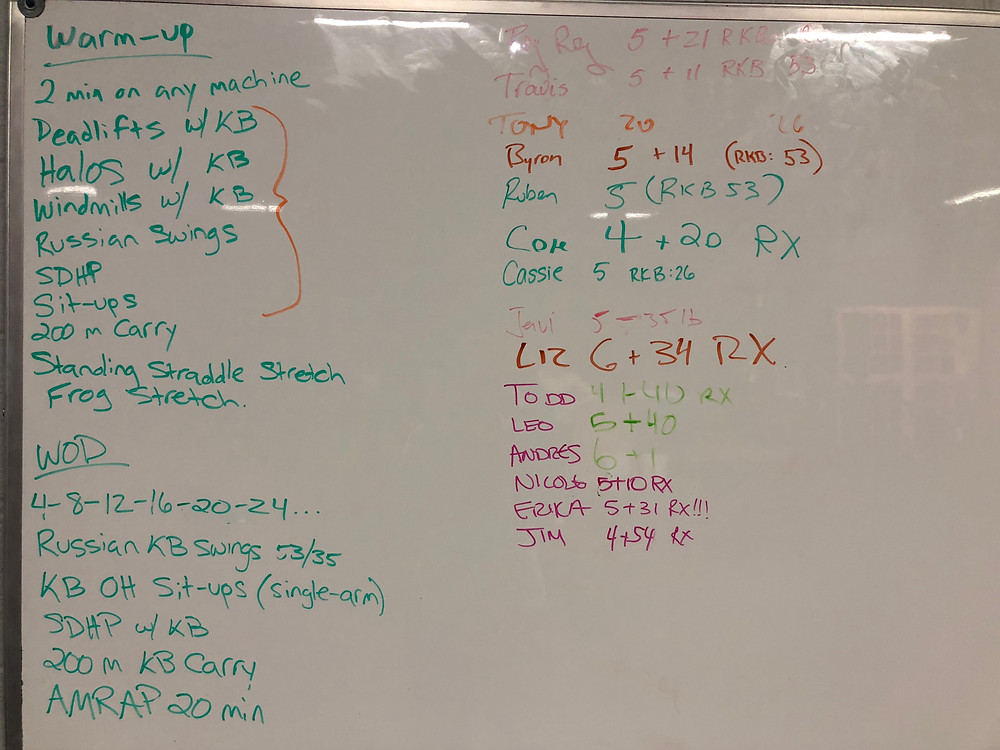 Warm-up
2 min on any machine
Deadlifts w/ KB
Halos w/ KB
Windmills w/ KB
Russian Swings
SDHP
Sit-ups
200 m Carry
Standing Straddle Stretch
Frog Stretch.
WOD
4-8-12-16-20-24...
Russian KB Swings 53/35
KB OH Sit-ups (single-arm)
SDHP w/ KB
200 m KB Carry
AMRAP 20 min
Rey 5 + 21 RKB
Travis 5 + 11 RKB 53
TONY 20 26
Byron 5 + 14 (RKB: 53)
Ruben 5 (RKB 53)
4 + 20 RX
Cassie 5 RKB:26
Javi 5 - 35 lb
LIZ 6 + 34 RX.
TODD 4 + 40 RX
LEO 5 + 40
ANDRES 6 + 1
NICOLE 5+10 RX
ERIKA 5+31 RX!!!
JIM 4+54 RX